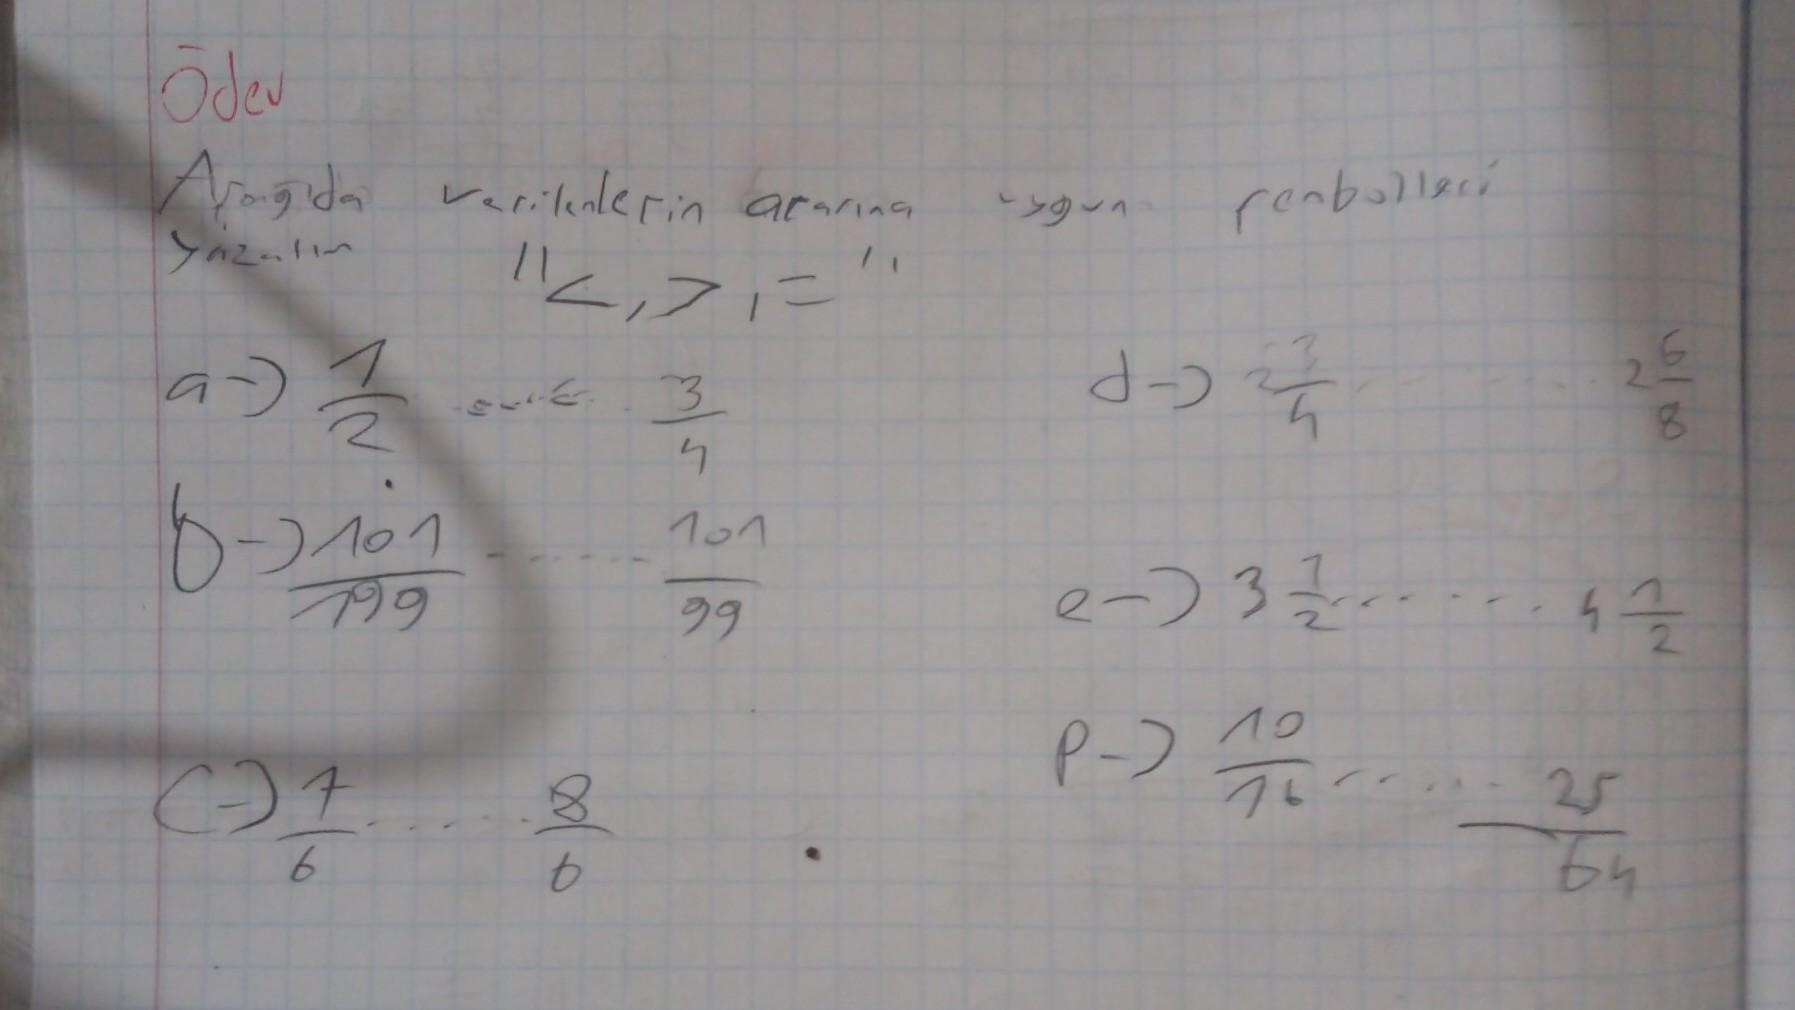 Ödev
Aşağıda verilenlerin arasına uygun senbolleri
yazalım "<, >, = "
a-) 1/2 ........ 3/4
b-) 101/199 ........ 101/99
c-) 7/6 ........ 8/6
d-) 2 3/4 ........ 2 6/8
e-) 3 1/2 ........ 4 1/2
f-) 10/16 ........ 25/64